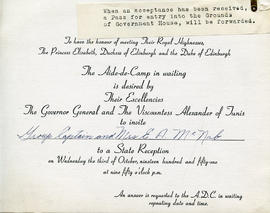 When an acceptance has been received,
a Pass for entry into the Grounds
of Government House, will be forwarded.
To have the honour of meeting Their Royal Highnesses,
The Princess Elizabeth, Duchess of Edinburgh and the Duke of Edinburgh
The Aide-de-Camp in waiting
is desired by
Their Excellencies
The Governor General and The Viscountess Alexander of Tunis
to invite
Group Captain and Mrs E. A. McNab
to a State Reception
on Wednesday the third of October, nineteen hundred and fifty-one
at nine fifty o'clock p.m.
An answer is requested to the A.D.C. in waiting
repeating date and time.